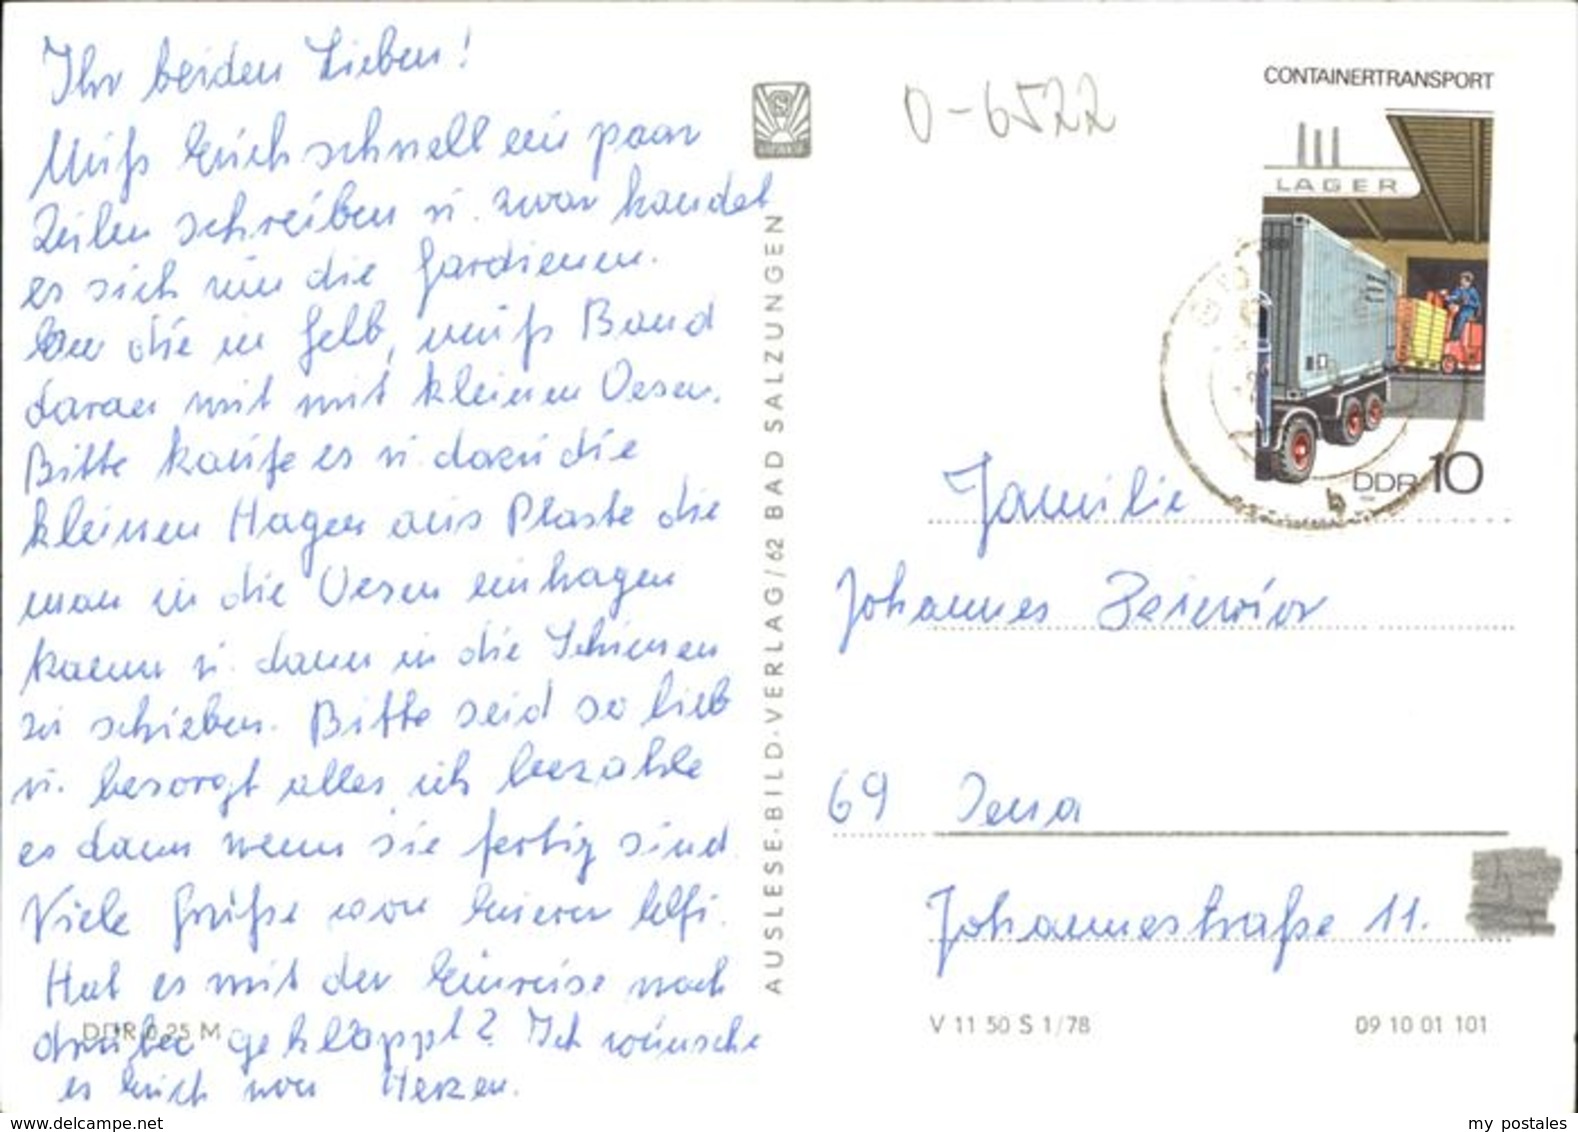 Ihr beiden Lieben!
Muß Euch schnell ein paar
Zeilen schreiben u. zwar handelt
es sich um die Gardienen.
die in Gelb, muß Band
daran mit mit kleinen Oesen.
Bitte kaufe es u. dazu die
kleinen Hagen aus Plaste die
man in die Oesen einhagen
kann u. dann in die Schienen
zu schieben. Bitte seid so lieb
u. besorgt alles ich bezahle
es dann wenn sie fertig sind.
Viele Grüße von Eurer Elfi.
Hat es mit der Einreise nach
drüben geklappt? Ich wünsche
es Euch von Herzen.
DDR 0,25 M
AUSLESE-BILD-VERLAG/62 BAD SALZUNGEN
0-6522
CONTAINERTRANSPORT
LAGER
DDR 10
b
Familie
Johannes
69 Jena
Johannestraße 11.
V 11 50 S 1/78
09 10 01 101
my postales